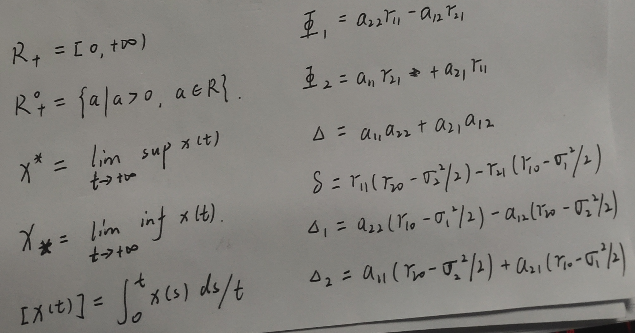 R₊ = [0, +∞)
R₊° = {a | a > 0, a ∈ R}.
x* = lim sup x(t)
t→+∞
x⁎ = lim inf x(t).
t→+∞
[x(t)] = ∫₀ᵗ x(s) ds/t
Φ₁ = a₂₂r₁₁ - a₁₂r₂₁
Φ₂ = a₁₁r₂₁ + a₂₁r₁₁
Δ = a₁₁a₂₂ + a₂₁a₁₂
δ = r₁₁(r₂₀ - σ₂²/2) - r₂₁(r₁₀ - σ₁²/2)
Δ₁ = a₂₂(r₁₀ - σ₁²/2) - a₁₂(r₂₀ - σ₂²/2)
Δ₂ = a₁₁(r₂₀ - σ₂²/2) + a₂₁(r₁₀ - σ₁²/2)